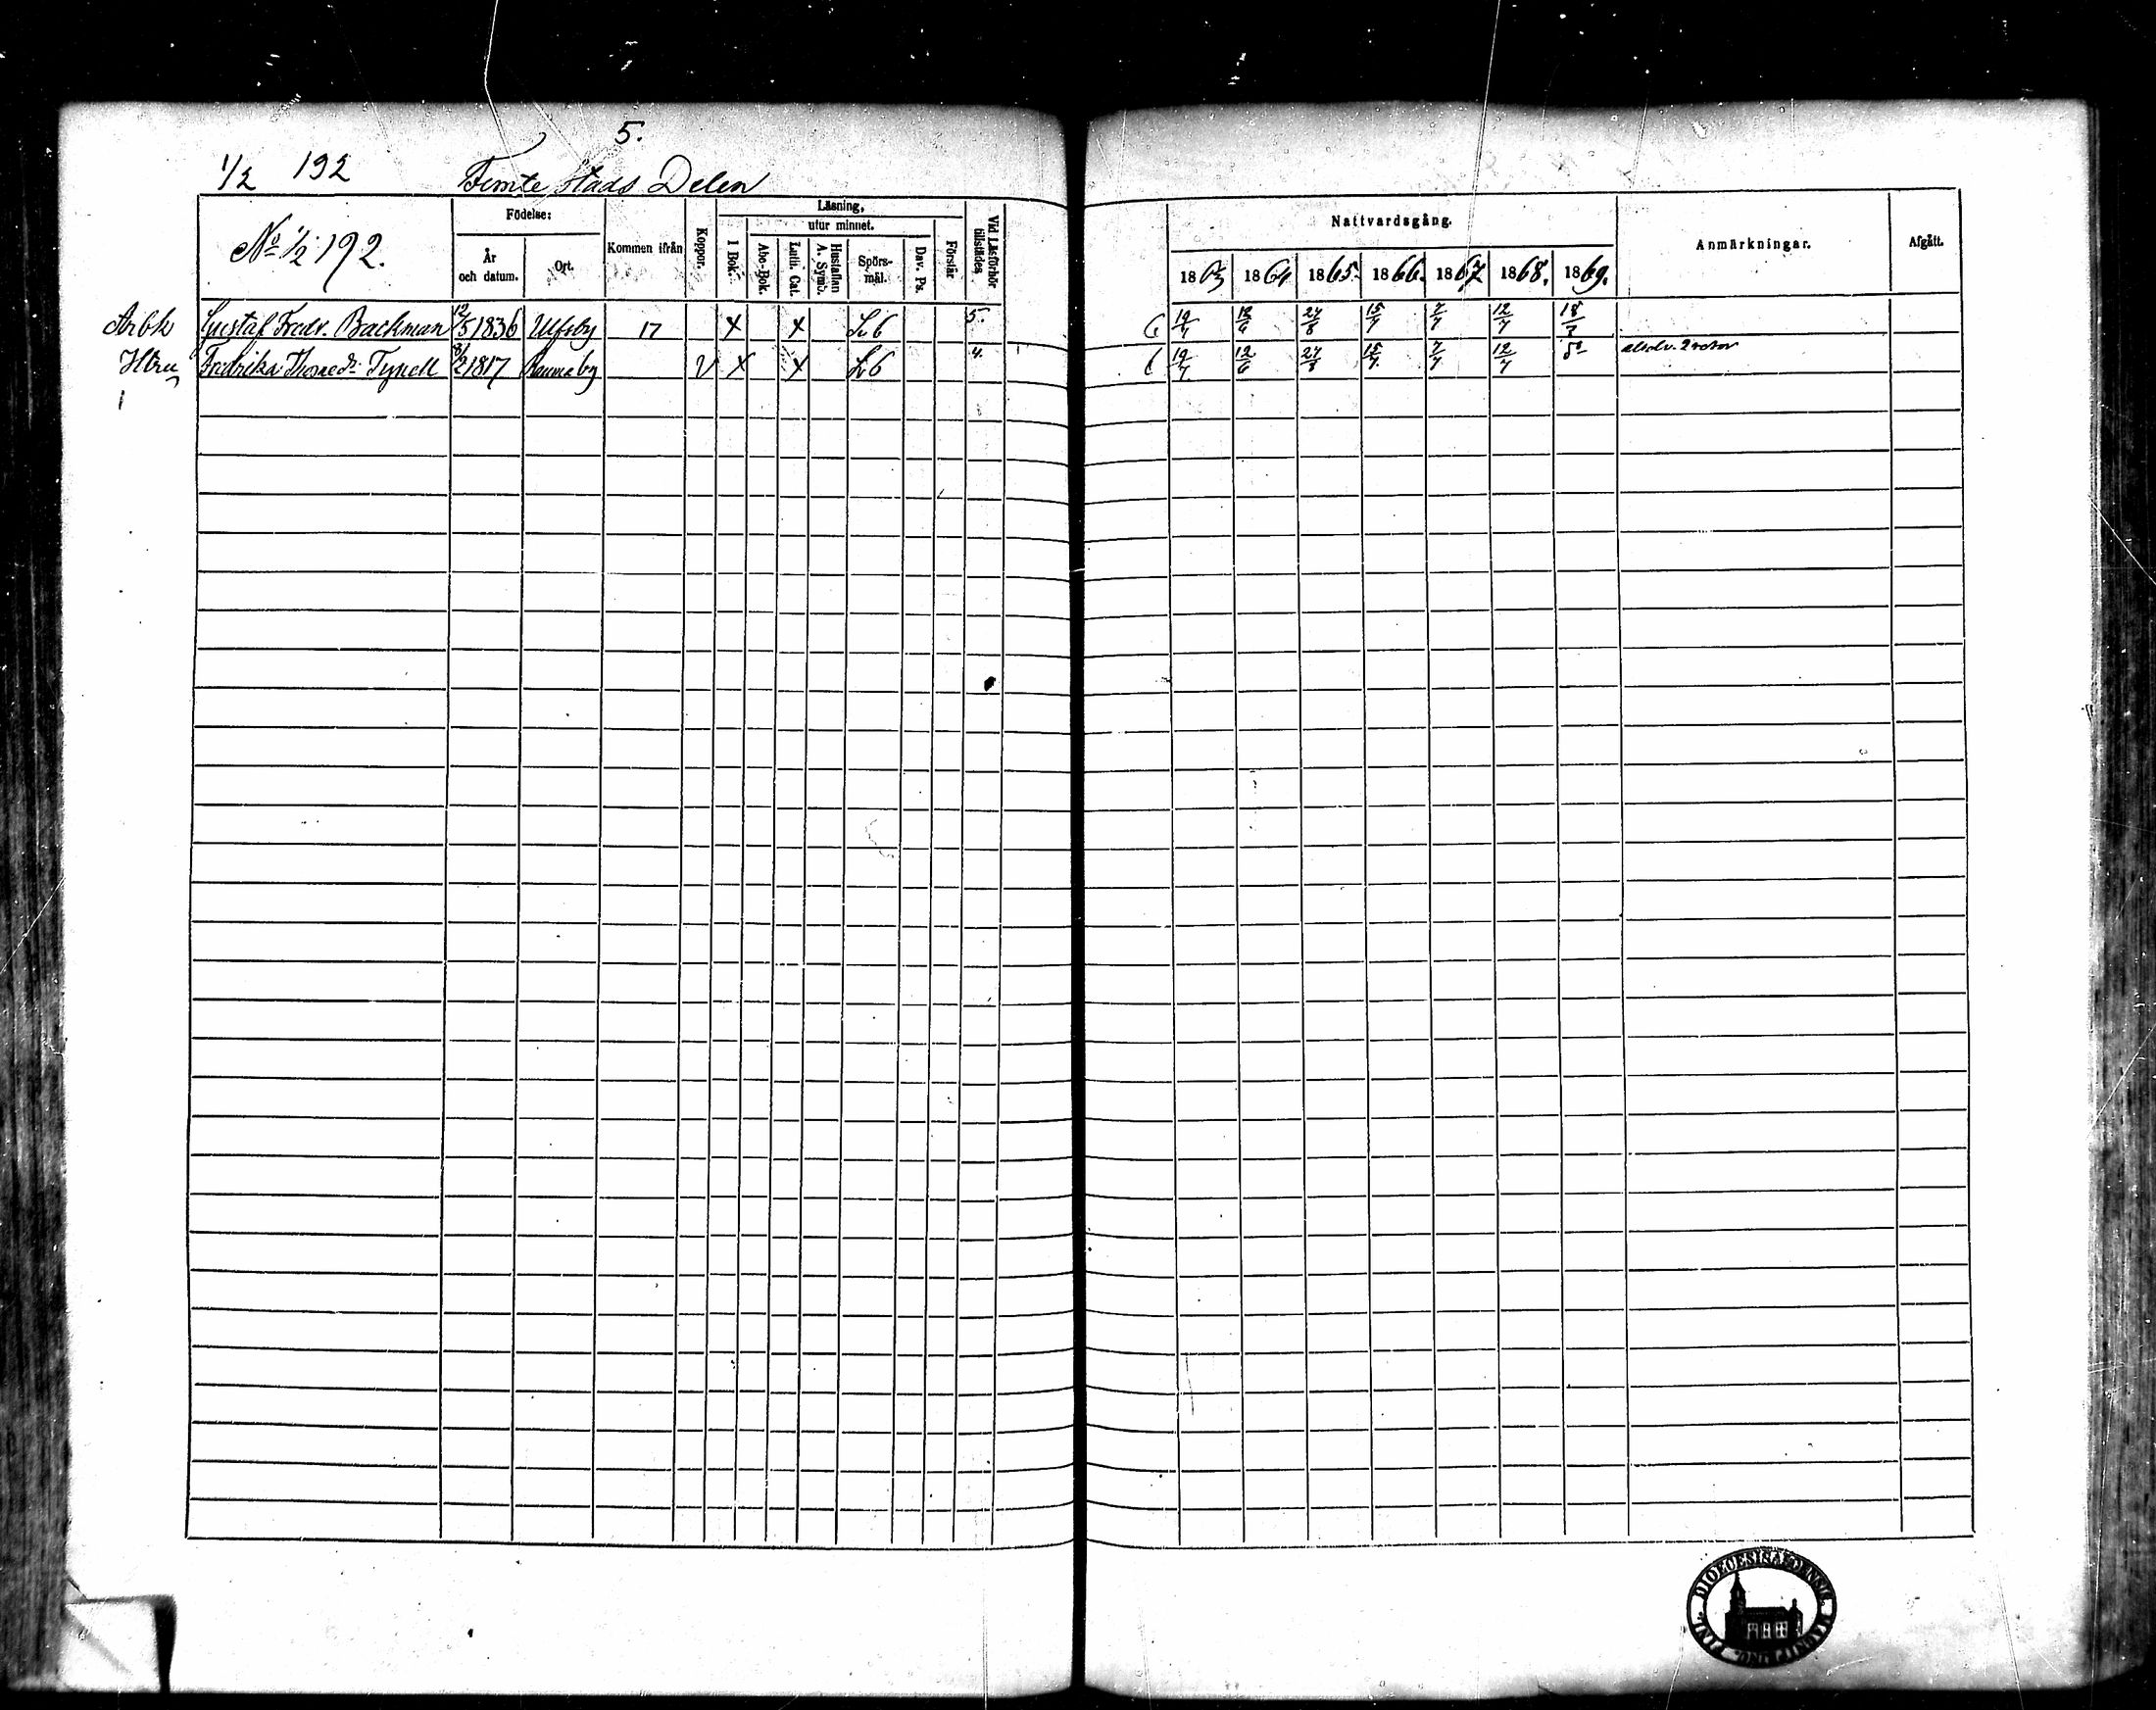 5.
1/2 192 Femte Stads Delen
No 1/2 192.
Födelse:
År och datum.
Ort.
Kommen ifrån
Koppor.
Läsning,
I Bok.
utur minnet.
Abc-Bok.
Luth. Cat.
Hustaflan A. Symb.
Spörs-mål.
Dav. Ps.
Förstår
Vid Läsförhör tillstädes
Nattvardsgång.
1863 1864 1865. 1866. 1867 1868. 1869.
Anmärkningar.
Afgått.
Arbk Gustaf Fredr. Backman 12/5 1836 Ulfsby 17 X X L6 5. 19/7 12/6 27/8 15/7 7/7 12/7 18/7
Hstru Fredrika Thomed: Tynell 8/2 1817 Raumaby V X X L6 4. 19/7 12/6 27/8 15/7 7/7 12/7 absolv.
DIOECESIS ABOENSIS MAGNI PRINC. FINL.